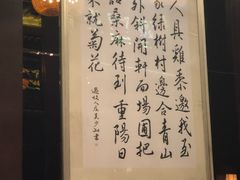 人具雞黍邀我至
家綠樹村邊合青山
外斜開軒面場圃把
話桑麻待到重陽日
來就菊花
過故人庄